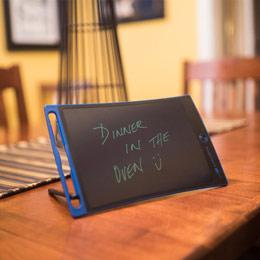 DINNER
IN THE
OVEN :)